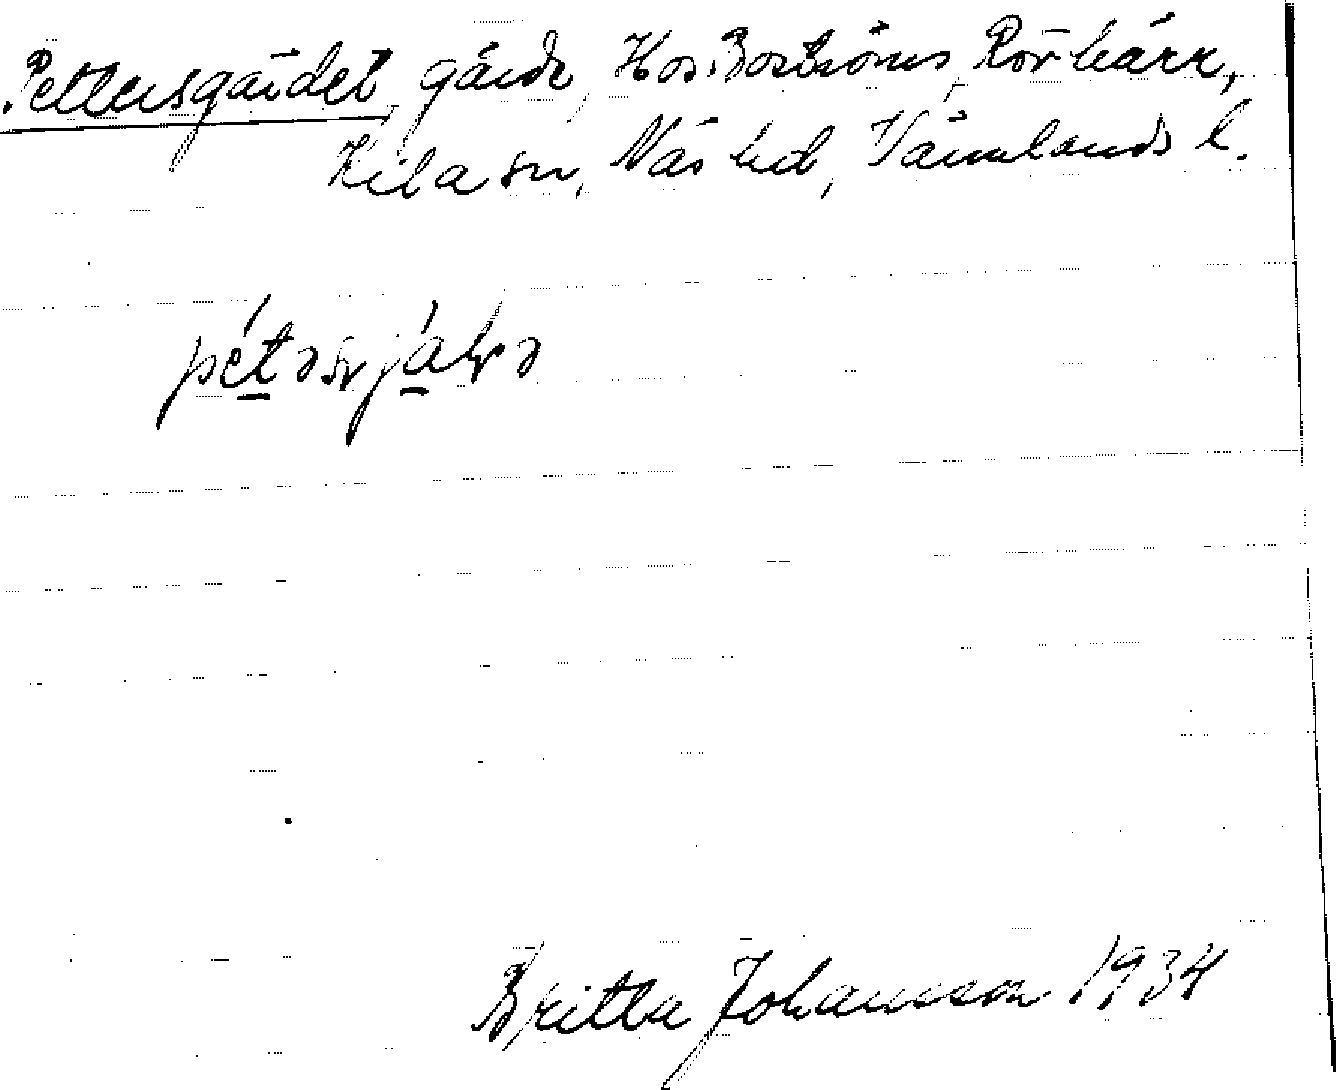 Pettersgärdet, gärde, Hos Boströms, Rörkärr,
Kila sn, Näs hd, Värmlands l.
Britta Johansson 1934